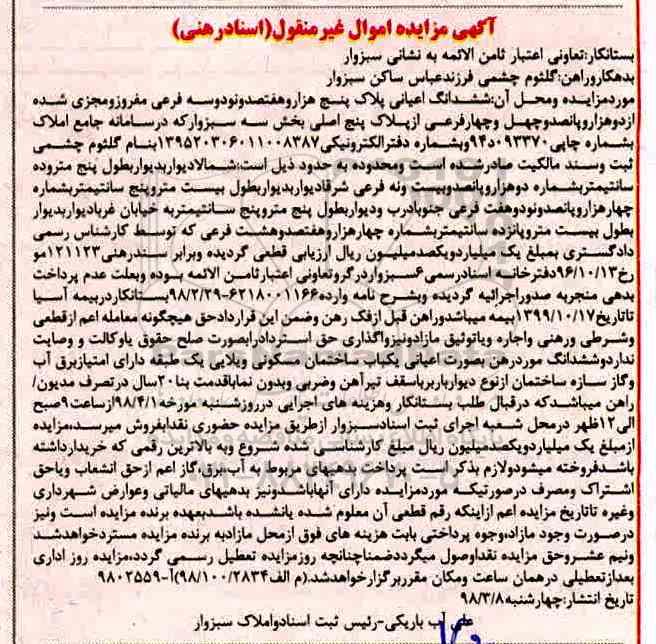 آگهی مزایده اموال غیرمنقول(اسنادرهنی)
بستانکار:تعاونی اعتبار ثامن الائمه به نشانی سبزوار
بدهکاروراهن:گلثوم چشمی فرزندعباس ساکن سبزوار
موردمزایده ومحل آن:ششدانگ اعیانی پلاک پنج هزاروهفتصدونودوسه فرعی مفروزومجزی شده
ازدوهزاروپانصدوچهل وچهارفرعی ازپلاک پنج اصلی بخش سه سبزوارکه درسامانه جامع املاک
بشماره چاپی۰۹۳۳۷۰د۹۴وبشماره دفترالکترونیکی۱۳۹۵۲۰۳۰۶۰۱۱۰۰۸۳۸۷بنام گلثوم چشمی
ثبت وسند مالکیت صادرشده است ومحدوده به حدود ذیل است:شمالادیواربدیواربطول پنج متروده
سانتیمتربشماره دوهزاروپانصدوبیست ونه فرعی شرقادیواربدیواربطول بیست متروپنج سانتیمتربشماره
چهارهزاروپانصدونودوهفت فرعی جنوبادرب ودیواربطول پنج متروپنج سانتیمتربه خیابان غربادیواربدیوار
بطول بیست متروپانزده سانتیمتربشماره چهارهزاروهفتصدوهشت فرعی که توسط کارشناس رسمی
دادگستری بمبلغ یک میلیاردویکصدمیلیون ریال ارزیابی قطعی گردیده وبرابر سندرهنی۱۲۱۱۲۳مو
رخ۹۶/۱۰/۱۳دفترخانه اسنادرسمی۶سبزواردرگروتعاونی اعتبارثامن الائمه بوده وبعلت عدم پرداخت
بدهی منجربه صدوراجرائیه گردیده وبشرح نامه وارده۶۲۱۸۰۰۱۱۶۶-۹۸/۲/۲۹بستانکاردربیمه آسیا
تاتاریخ۱۳۹۹/۱۰/۱۷بیمه میباشدوراهن قبل ازفک رهن وضمن این قراردادحق هیچگونه معامله اعم ازقطعی
وشرطی ورهنی واجاره ویاتوثیق مازادونیزواگذاری حق استردادرابصورت صلح حقوق یاوکالت و وصایت
نداردوششدانگ موردرهن بصورت اعیانی یکباب ساختمان مسکونی ویلایی یک طبقه دارای امتیازبرق آب
وگاز سازه ساختمان ازنوع دیوارباربرباسقف تیرآهن وضربی وبدون نماباقدمت بنا۲۰سال درتصرف مدیون/
راهن میباشدکه درقبال طلب بستانکار وهزینه های اجرایی درروزشنبه مورخه۹۸/۴/۱ازساعت۹صبح
الی۱۲ظهر درمحل شعبه اجرای ثبت اسنادسبزوار ازطریق مزایده حضوری نقدابفروش میرسد،مزایده
ازمبلغ یک میلیاردویکصدمیلیون ریال مبلغ کارشناسی شده شروع وبه بالاترین رقمی که خریدارداشته
باشدفروخته میشودولازم بذکر است پرداخت بدهیهای مربوط به آب،برق،گاز اعم ازحق انشعاب ویاحق
اشتراک ومصرف درصورتیکه موردمزایده دارای آنهاباشدونیز بدهیهای مالیاتی وعوارض شهرداری
وغیره تاتاریخ مزایده اعم ازاینکه رقم قطعی آن معلوم شده یانشده باشدبعهده برنده مزایده است ونیز
درصورت وجود مازاد،وجوه پرداختی بابت هزینه های فوق ازمحل مازادبه برنده مزایده مستردخواهدشد
ونیم عشروحق مزایده نقداوصول میگرددضمناچنانچه روزمزایده تعطیل رسمی گردد،مزایده روز اداری
بعدازتعطیلی درهمان ساعت ومکان مقرربرگزارخواهدشد.(م الف۹۸/۱۰۰/۲۸۳۴)آ-۹۸۰۲۵۵۹
تاریخ انتشار:چهارشنبه۹۸/۳/۸
علی آب باریکی-رئیس ثبت اسنادواملاک سبزوار